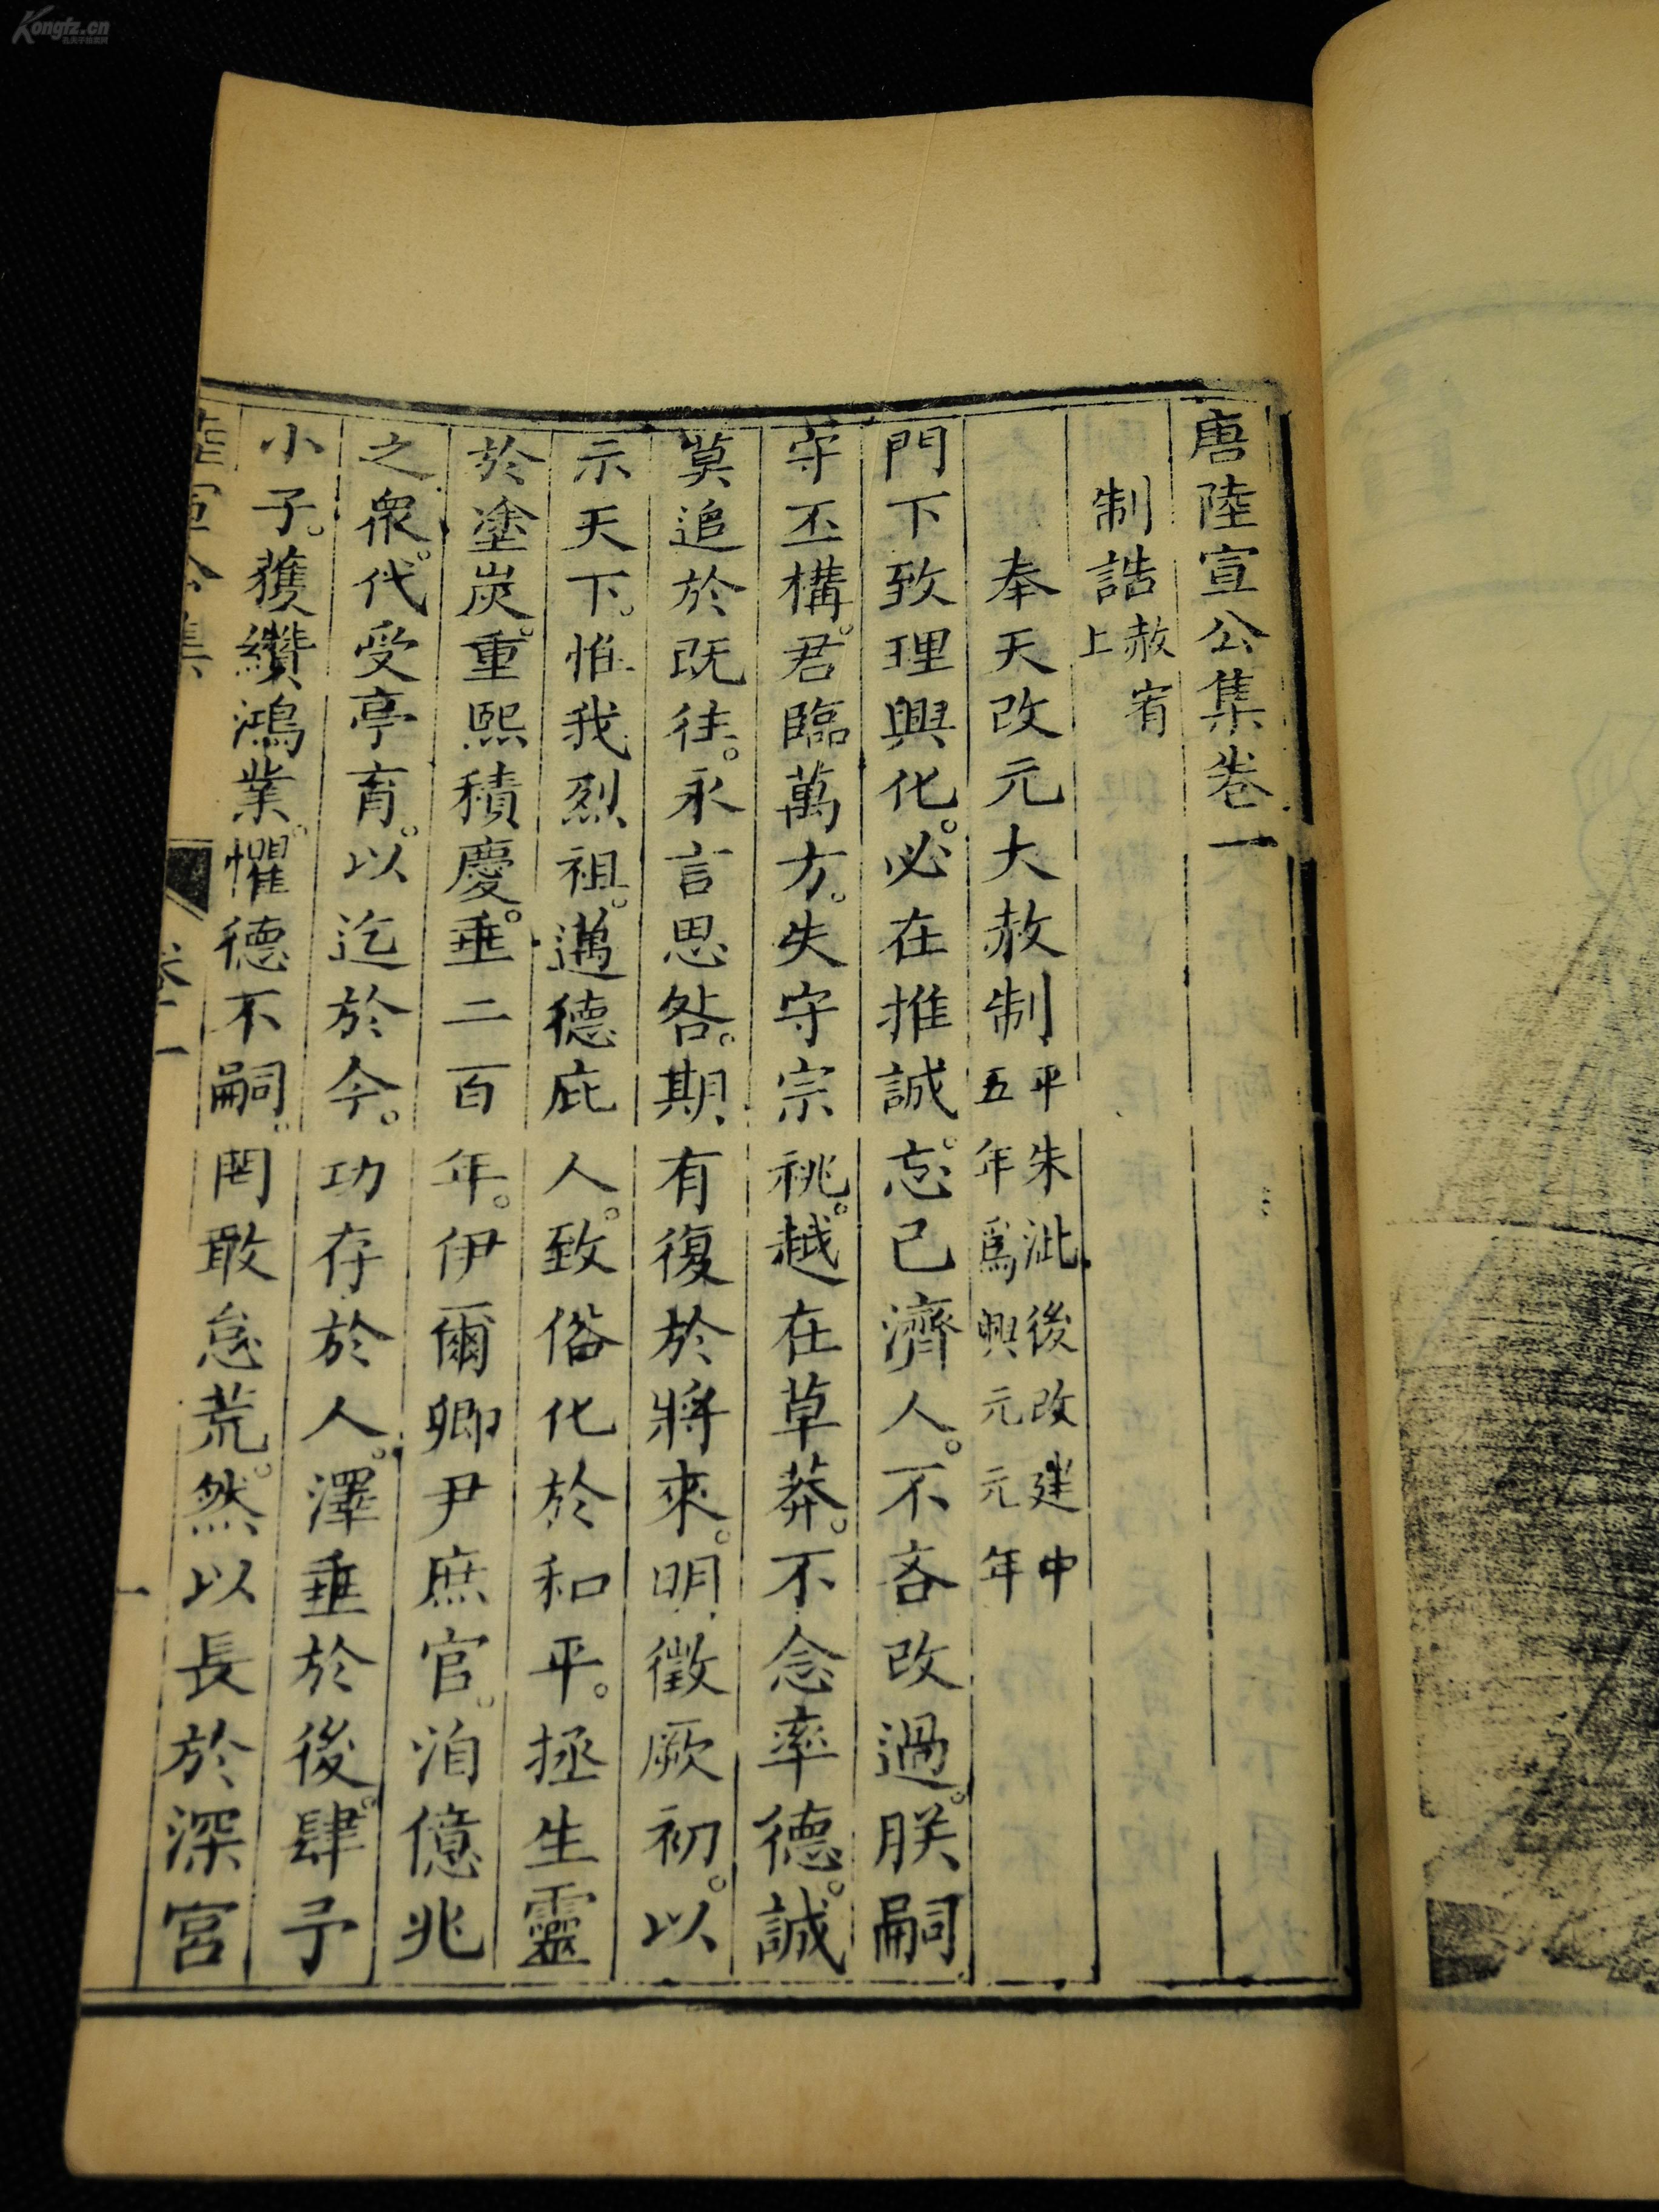 唐陸宣公集卷一
制誥 赦宥上
奉天改元大赦制 平朱泚後改建中五年爲興元元年
門下致理興化。必在推誠。忘己濟人。不吝改過。朕嗣
守丕構。君臨萬方。失守宗祧。越在草莽。不念率德。誠
莫追於既往。永言思咎。期有復於將來。明徵厥初。以
示天下。惟我烈祖。邁德庇人。致俗化於和平。拯生靈
於塗炭。重熙積慶。垂二百年。伊爾卿尹庶官。洎億兆
之衆。代受亭育。以迄於今。功存於人。澤垂於後。肆予
小子。獲纘鴻業。懼德不嗣。罔敢怠荒。然以長於深宮
陸宣公集 卷一 一
Kongfz.cn